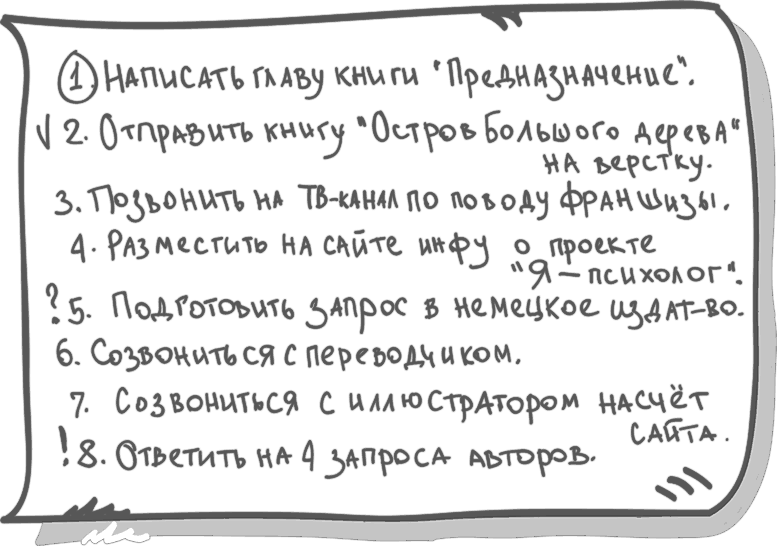 1. Написать главу книги "Предназначение".
√ 2. Отправить книгу "Остров большого дерева"
на верстку.
3. Позвонить на ТВ-канал по поводу франшизы.
4. Разместить на сайте инфу о проекте
"Я – психолог".
? 5. Подготовить запрос в немецкое издат-во.
6. Созвониться с переводчиком.
7. Созвониться с иллюстратором насчёт
сайта.
! 8. Ответить на 4 запроса авторов.